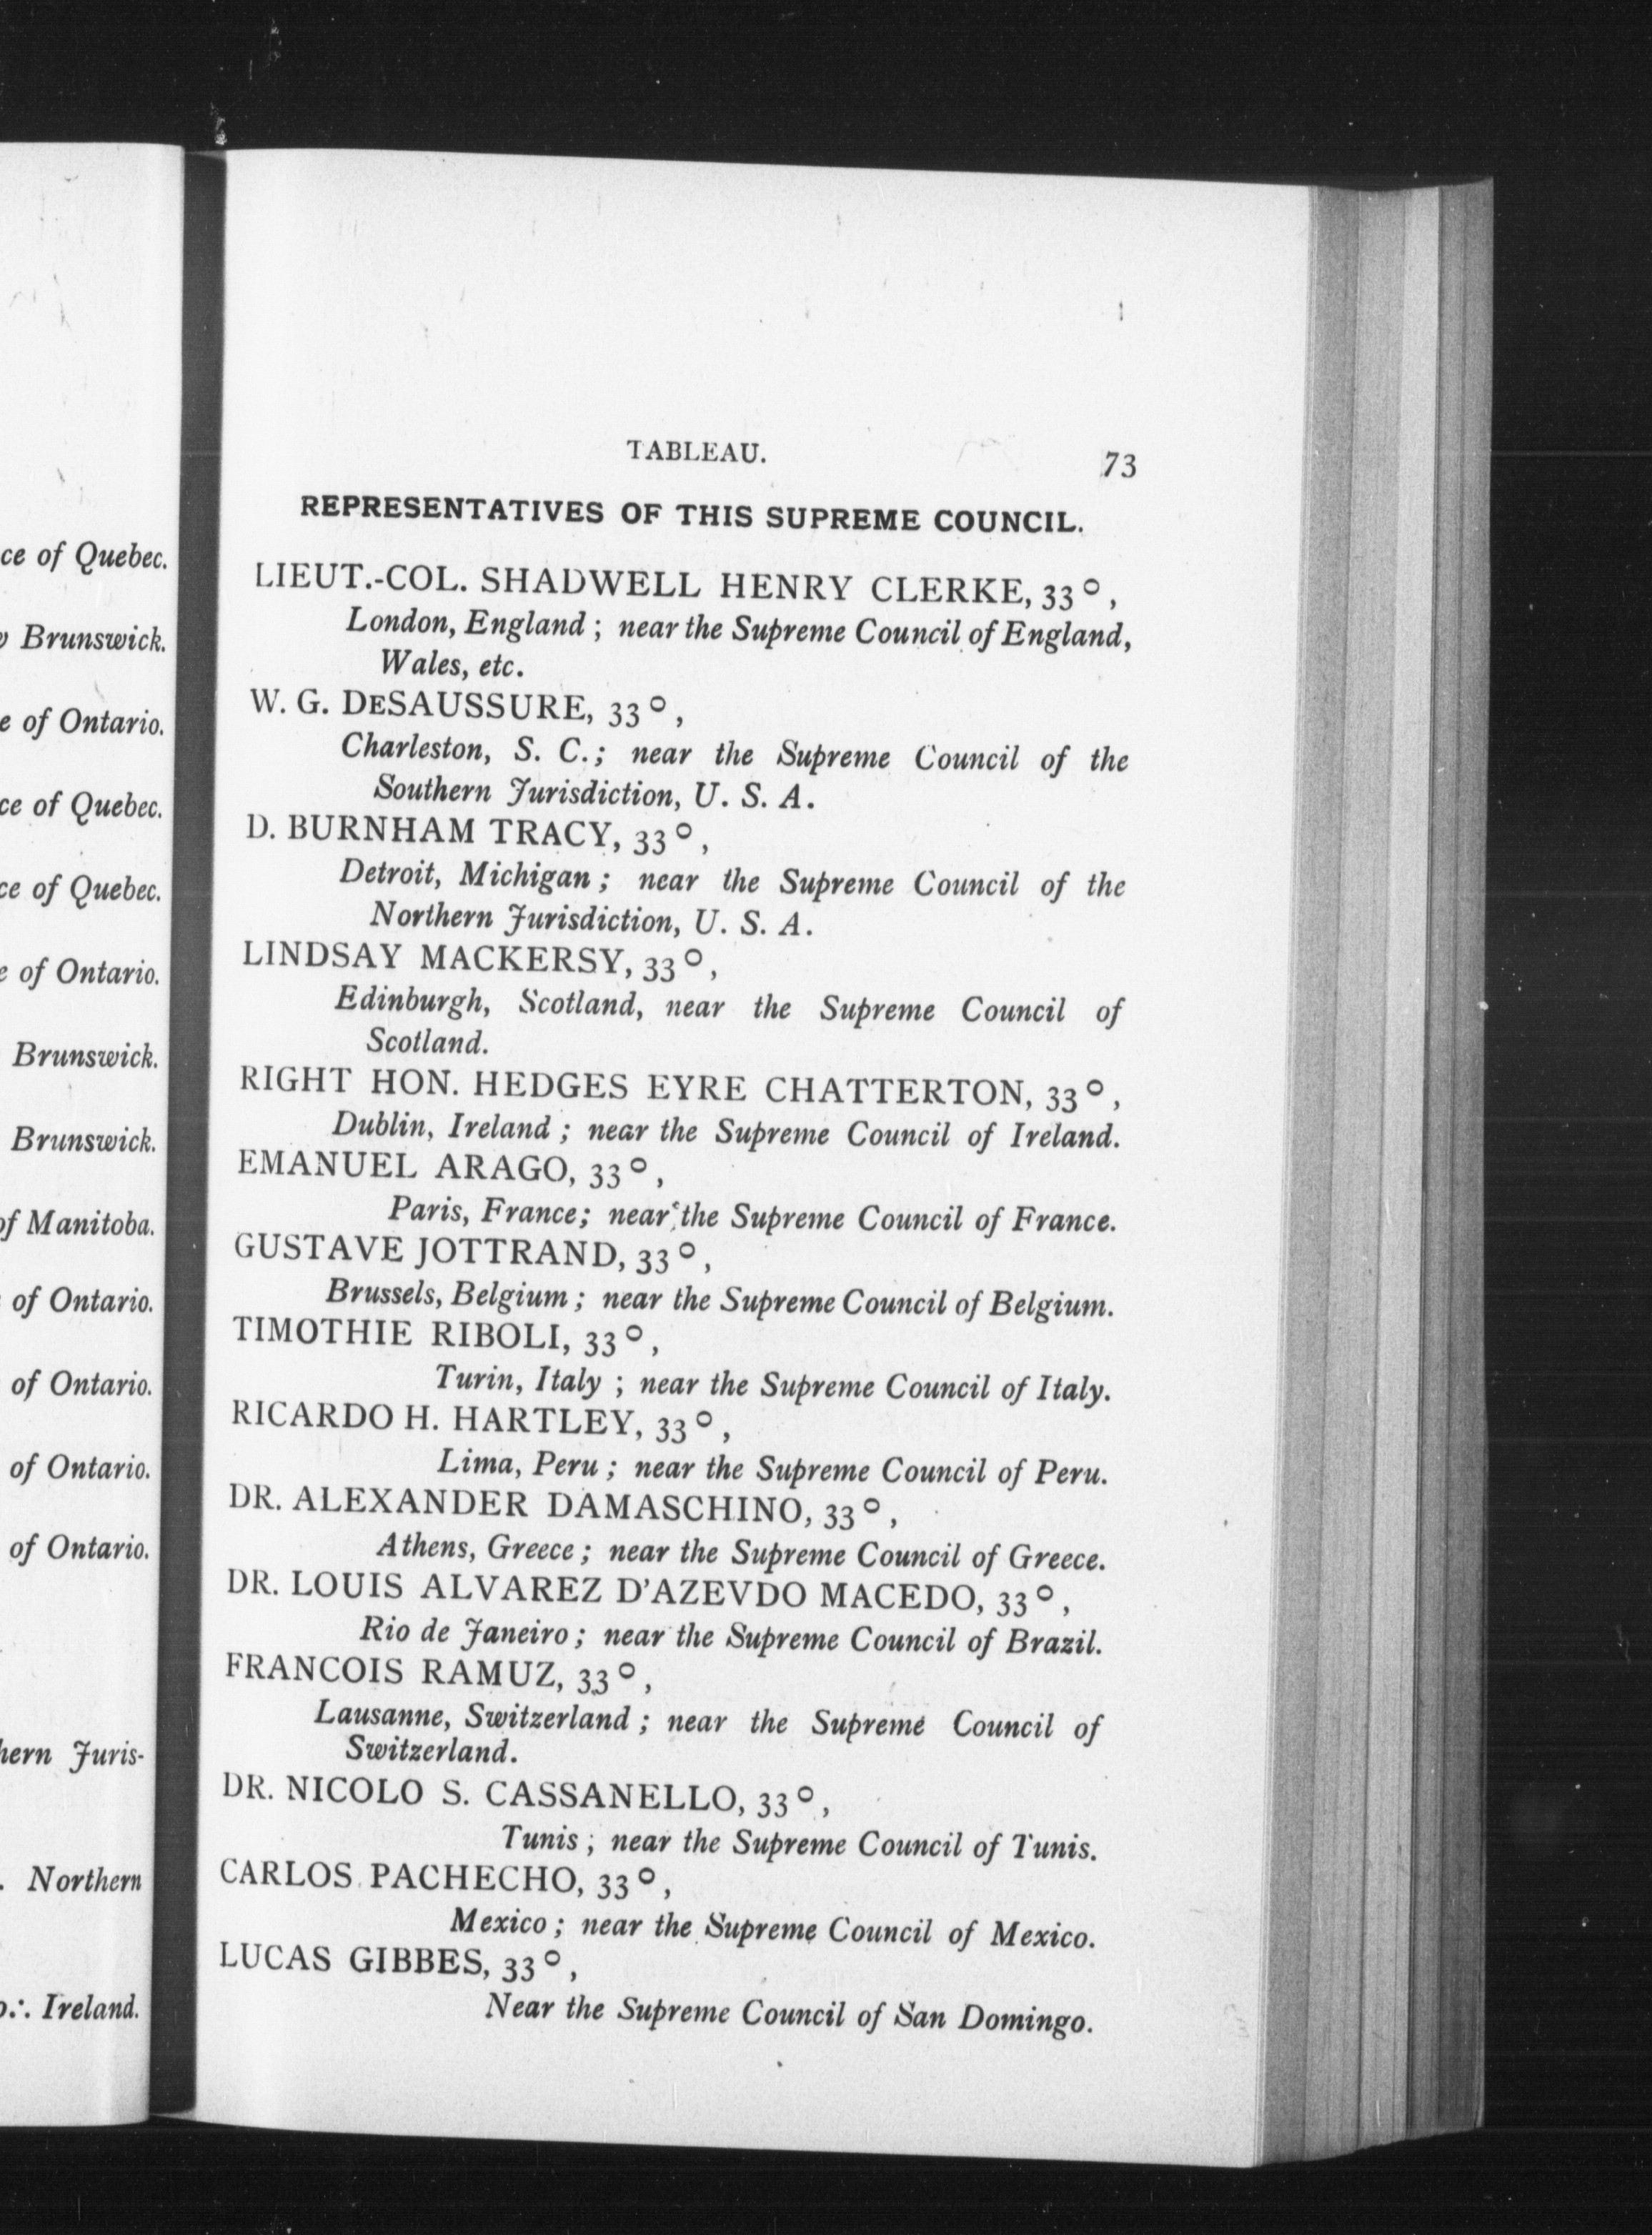 ce of Quebec.
Brunswick.
e of Ontario.
ce of Quebec.
ce of Quebec.
e of Ontario.
Brunswick.
Brunswick.
of Manitoba.
of Ontario.
of Ontario.
of Ontario.
of Ontario.
hern Juris-
. Northern
Ireland.
TABLEAU. 73
REPRESENTATIVES OF THIS SUPREME COUNCIL.
LIEUT.-COL. SHADWELL HENRY CLERKE, 33°,
London, England; near the Supreme Council of England,
Wales, etc.
W. G. DESAUSSURE, 33°,
Charleston, S. C.; near the Supreme Council of the
Southern Jurisdiction, U. S. A.
D. BURNHAM TRACY, 33°,
Detroit, Michigan; near the Supreme Council of the
Northern Jurisdiction, U. S. A.
LINDSAY MACKERSY, 33°,
Edinburgh, Scotland, near the Supreme Council of
Scotland.
RIGHT HON. HEDGES EYRE CHATTERTON, 33°,
Dublin, Ireland; near the Supreme Council of Ireland.
EMANUEL ARAGO, 33°,
Paris, France; near the Supreme Council of France.
GUSTAVE JOTTRAND, 33°,
Brussels, Belgium; near the Supreme Council of Belgium.
TIMOTHIE RIBOLI, 33°,
Turin, Italy; near the Supreme Council of Italy.
RICARDO H. HARTLEY, 33°,
Lima, Peru; near the Supreme Council of Peru.
DR. ALEXANDER DAMASCHINO, 33°,
Athens, Greece; near the Supreme Council of Greece.
DR. LOUIS ALVAREZ D'AZEVDO MACEDO, 33°,
Rio de Janeiro; near the Supreme Council of Brazil.
FRANCOIS RAMUZ, 33°,
Lausanne, Switzerland; near the Supreme Council of
Switzerland.
DR. NICOLO S. CASSANELLO, 33°,
Tunis; near the Supreme Council of Tunis.
CARLOS PACHECHO, 33°,
Mexico; near the Supreme Council of Mexico.
LUCAS GIBBES, 33°,
Near the Supreme Council of San Domingo.